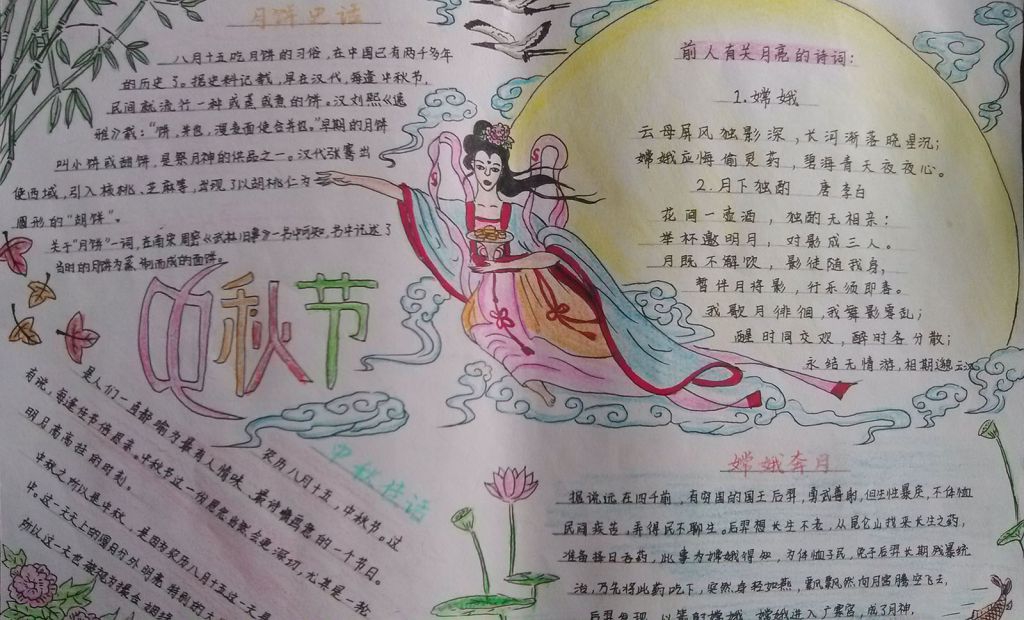 月饼史话
八月十五吃月饼的习俗，在中国已有两千多年
的历史了。据史料记载，早在汉代，每逢中秋节，
民间就流行一种或蒸或煮的饼。汉刘熙《逸
雅》载：“饼，并也，溲麦面使合并也。”早期的月饼
叫小饼或甜饼，是祭月神的供品之一。汉代张骞出
使西域，引入核桃、芝麻等，出现了以胡桃仁为
圆形的“胡饼”。
关于“月饼”一词，在南宋周密《武林旧事》一书中可知，书中记述了
当时的月饼为蒸制而成的面饼。
中秋节
前人有关月亮的诗词：
1.嫦娥
云母屏风独影深，长河渐落晓星沉；
嫦娥应悔偷灵药，碧海青天夜夜心。
2.月下独酌 唐李白
花间一壶酒，独酌无相亲：
举杯邀明月，对影成三人。
月既不解饮，影徒随我身，
暂伴月将影，行乐须即春。
我歌月徘徊，我舞影零乱；
醒时同交欢，醉时各分散；
永结无情游，相期邈云汉
中秋传话
农历八月十五，中秋节。这
是人们一直都喻为最有人情味、最诗情画意的一个节日。
有说，每逢佳节倍思亲。中秋节这一份思念当然会更深切，尤其是一轮
明月高高挂的时刻。
中秋之所以是中秋，是因为农历八月十五这一天是
中。这一天天上的圆月分外明亮特别的大
所以这一天也被视为撮合姻缘
嫦娥奔月
据说远在四千前，有穷国的国王后羿，勇武善射，但生性暴戾，不体恤
民间疾苦，弄得民不聊生。后羿想长生不老，从昆仑山找来长生之药，
准备择日吞药，此事为嫦娥得知，为体恤子民，免于后羿长期残暴统
治，乃先将此药吃下，突然身轻如燕，飘飘然向月宫腾空飞去，
后羿发现，以箭射嫦娥，嫦娥进入广寒宫，成了月神，